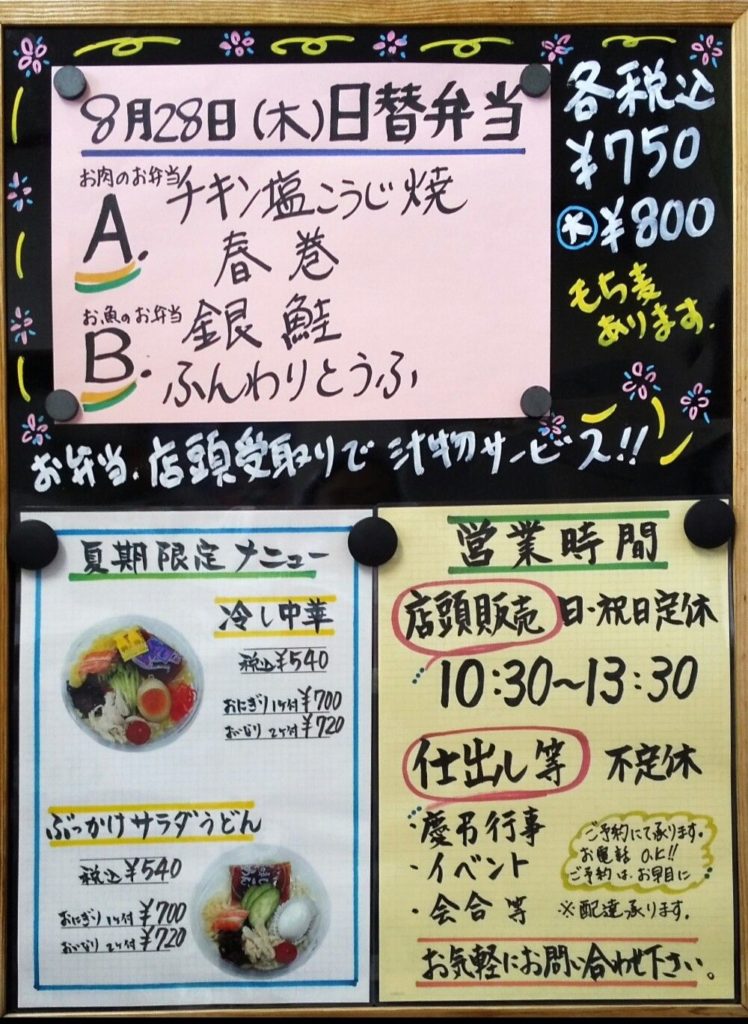 8月28日(木)日替弁当
お肉のお弁当
A. チキン塩こうじ焼
春巻
お魚のお弁当
B. 銀鮭
ふんわりとうふ
各税込
¥750
大¥800
もち麦
あります.
お弁当.店頭受取りで汁物サービス!!
夏期限定メニュー
冷し中華
税込¥540
おにぎり1ケ付¥700
おいなり2ケ付¥720
ぶっかけサラダうどん
税込¥540
おにぎり1ケ付¥700
おいなり2ケ付¥720
営業時間
店頭販売 日・祝日定休
10:30~13:30
仕出し等 不定休
・慶弔行事
・イベント
・会合等
ご予約にて承ります。
お電話O.K!!
ご予約は、お早目に
※配達承ります。
お気軽にお問い合わせ下さい。